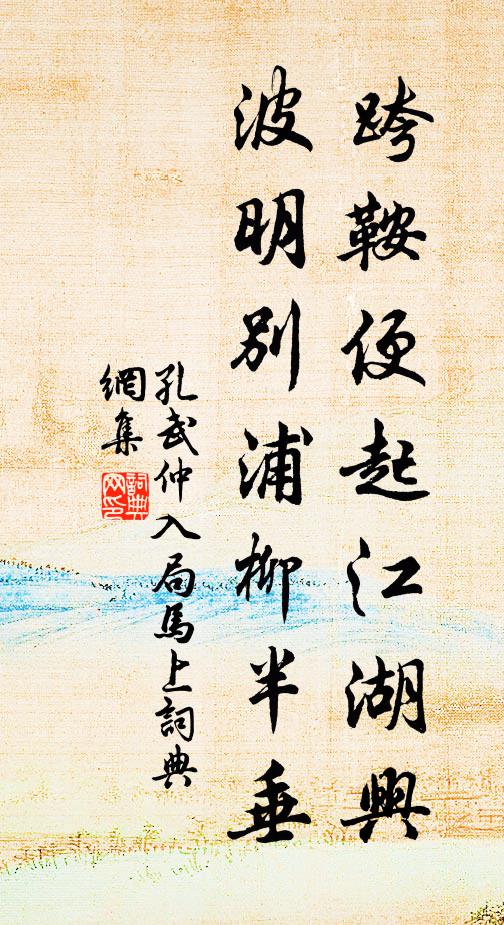 跨鞍便起江湖興
波明別浦柳半垂
孔武仲入局馬上詞典
網集
詞典
网印